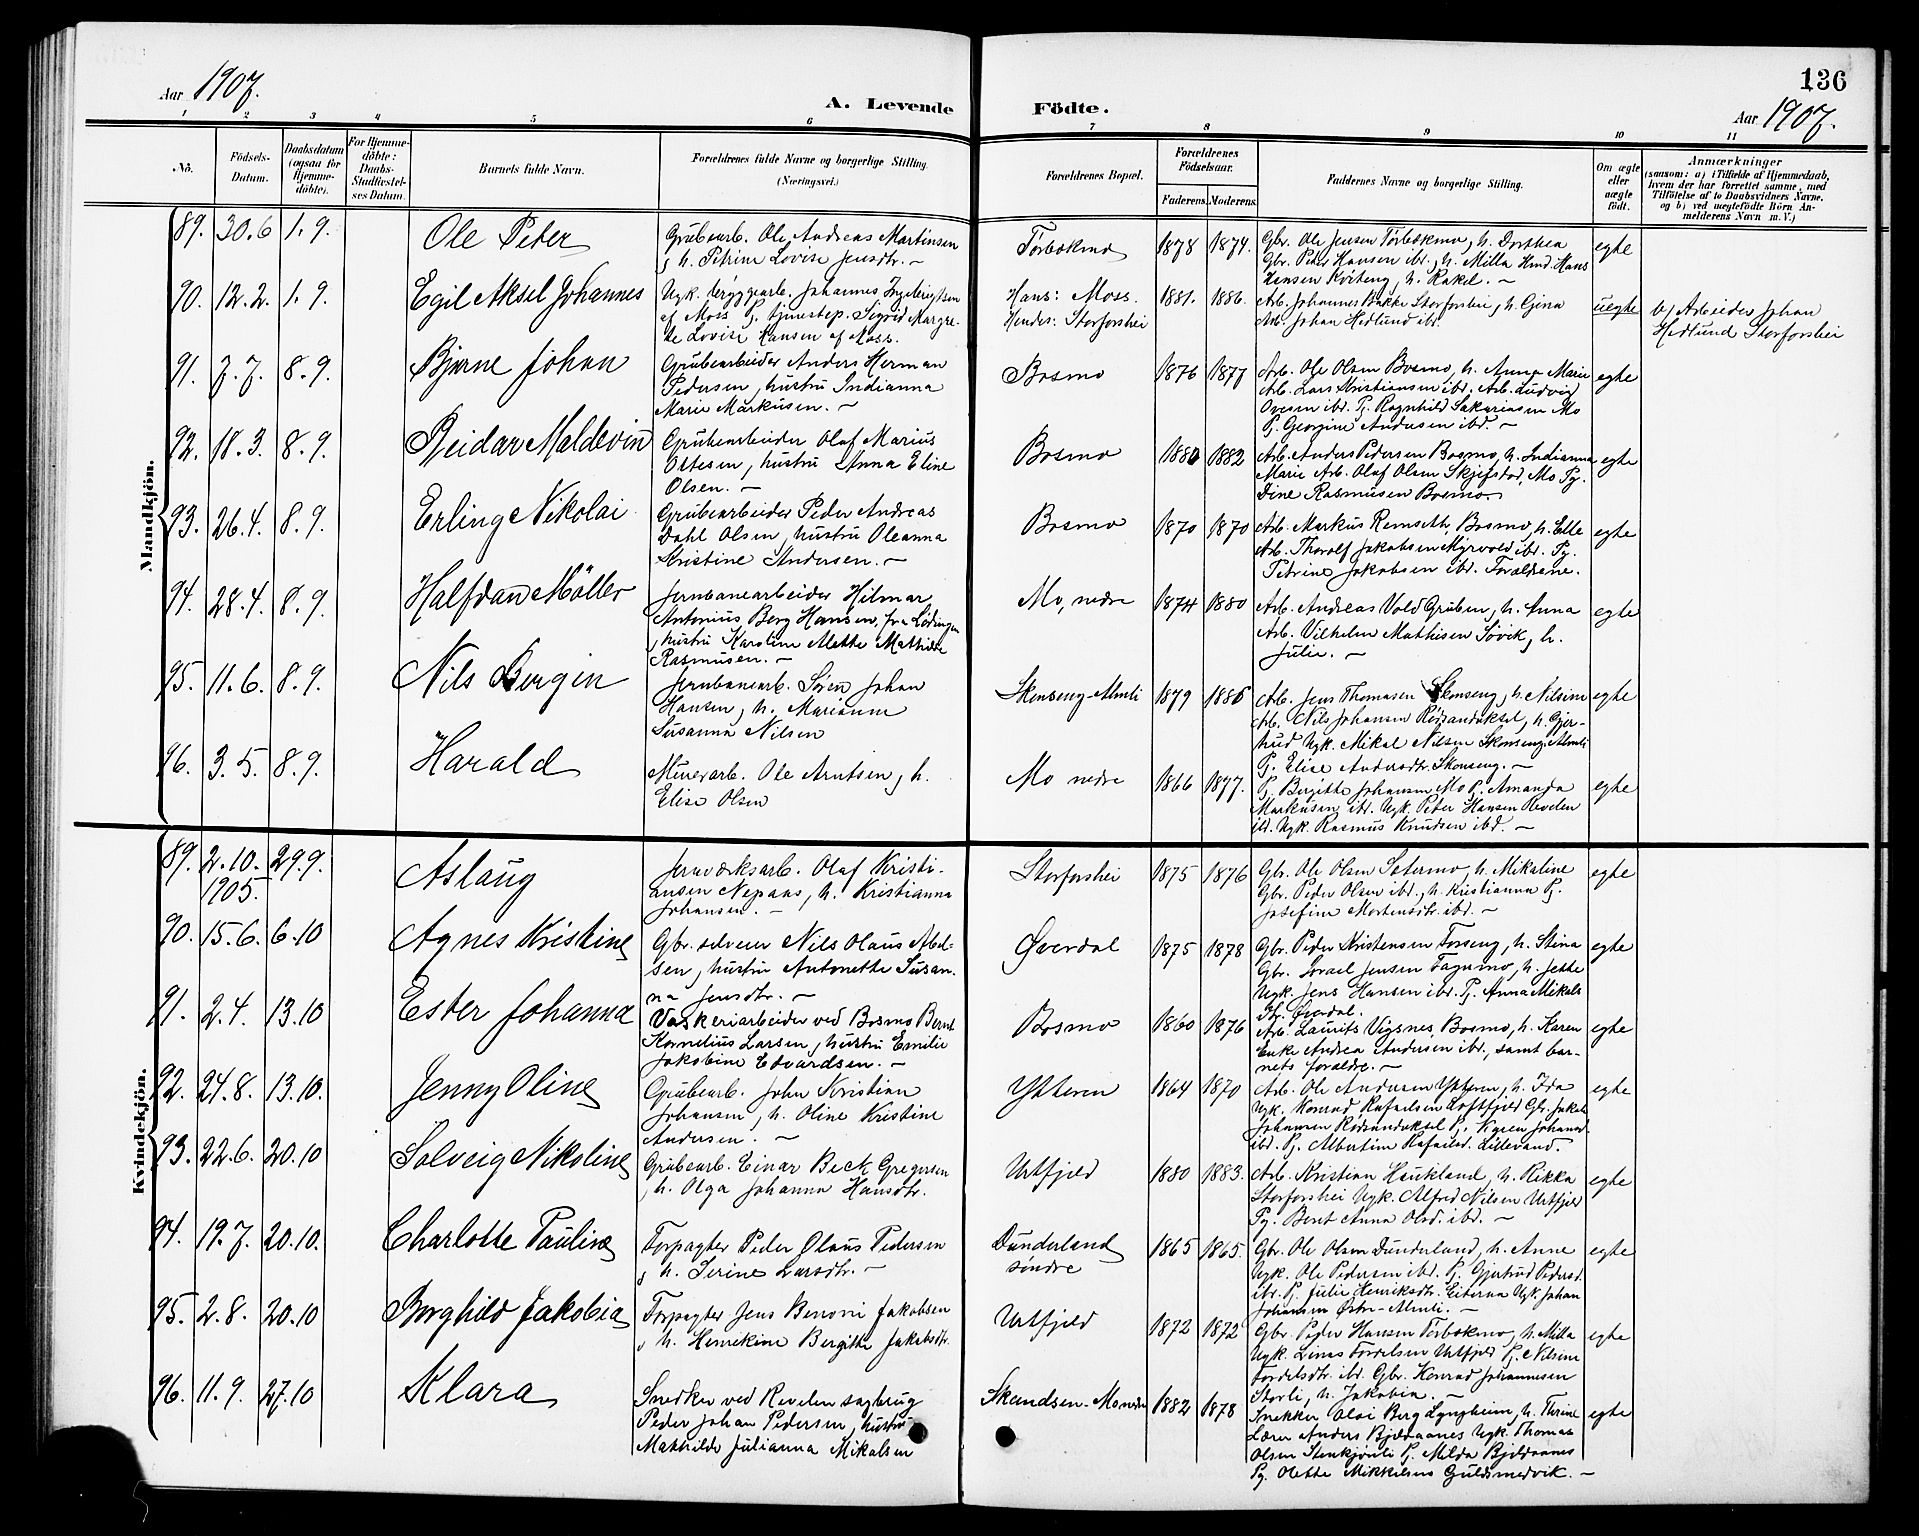 136
Aar 1907.
A. Levende Födte.
Aar 1907.
1 2 3 4 5 6 7 8 9 10 11
No.
Födsels-
Datum.
Daabsdatum
(ogsaa for
Hjemme-
döbte).
For Hjemme-
döbte:
Daabs-
Stadfæstel-
ses Datum.
Barnets fulde Navn.
Forældrenes fulde Navne og borgerlige Stilling.
(Næringsvei.)
Forældrenes Bopæl.
Forældrenes
Födselsaar.
Faderens. Moderens.
Faddernes Navne og borgerlige Stilling.
Om ægte
eller
uægte
födt.
Anmærkninger
(saasom: a) i Tilfælde af Hjemmedaab,
hvem der har forrettet samme, med
Tilföielse af to Daabsvidners Navne,
og b) ved uægtefödte Börn An-
melderens Navn m. V.)
Mandkjön.
89. 30.6 1.9. Ole Peter
Grubearb. Ole Andreas Martinsen
, h. Petrine Lovise Jensdtr. –
Torbækmo 1878 1874.
Gbr. Ole Jensen Torbækmo, h. Dorthea
Gbr. Peter Hansen ibr, h. Milla Hmd. Hans
Hansen, h. Rakel. –
egte
90. 12.2. 1.9. Egil Aksel Johannes
Ugk. bryggearb. Johannes Ingebrigtsen
af Moss Pg. tjenestep. Sigrid Margre-
the Lovise Hansen af Moss.
Hans: Moss.
Hendes: Storforshei
1881. 1886.
Arb. Johannes Bakke Storforshei, h. Gjena
Arb. Johan Hedlund ibr.
uegte
b/ Arbeider Johan
Hedlund Storforshei
91. 7.7. 8.9. Bjarne Johan
Grubearbeider Anders Herman
Pedersen, hustru Indianna
Marie Markusen. –
Bosmo 1876 1877
Arb. Ole Olsen Bosmo, h. Anna Marie
Arb. Lars Kristiansen ibr. Arb. Ludvig
Ovesen ibr. P. Ragnhild Sakariasen Mo
P. Georgine Andersen ibd. –
egte
92. 18.3. 8.9. Reidar Maldevin
Grubearbeider Olaf Marius
Ottesen, hustru Anna Eline
Olsen. –
Bosmo 1880 1882
Arb. Anders Pedersen Bosmo, h. Indianna
Marie Arb. Olaf Olsen Skjefstad, Mo Pg.
Dine Rasmusen Bosmo.
egte
93. 26.4. 8.9. Erling Nikolai
Grubearbeider Peder Andreas
Dahl Olsen, hustru Oleanna
Kristine Andersen. –
Bosmo 1870 1870
Arb. Markus Remseth, Bosmo, h. Elle
Arb. Thoralf Jakobsen Myrvold ibr. Pg.
Petrine Jakobsen ibr. Forældrene.
egte
94. 28.4. 8.9. Halfdan Møller
Jernbanearbeider Hilmar
Antonius Berg Hansen, fra Lødingen
, hustru Karoline Mette Mathilde
Rasmusen. –
Mo, nedre 1874 1880
Arb. Andreas Vold Gruben, h. Anna
Arb. Vilhelm Mathisen Søvik, h.
Julie. –
egte
95. 11.6. 8.9. Nils Bergin
Jernbanearb. Søren Johan
Hansen, h. Marianne
Susanna Nilsen
Skonseng-Almli 1879 1885
Arb. Jens Thomasen Skonseng, h. Nilsine
Arb. Nils Johansen Rødsandaksel, h. Gjer-
trud Ugk. Mikal Nilsen Skonseng-Almli
P. Elise Andersdtr. Skonseng. –
egte
96. 3.5. 8.9. Harald
Minerarb. Ole Arntsen, h.
Elise Olsen
Mo nedre 1866 1877.
P. Birgitte Johansen Mo P. Amanda
Markusen ibr. Ugk. Peter Hansen Revelen
ibd. Ugk. Rasmus Knudsen ibd. –
egte
Kvindekjön.
89. 2.10. 1905. 29.9. Aslaug
Jernværksarb. Olaf Kristi-
ansen Nepaas, h. Kristianna
Johansen. –
Storforshei 1875 1876
Gbr. Ole Olsen Setermo, h. Mikaline
Gbr. Peder Olsen ibr., h. Kristianna P.
Josefine Mortensdtr. ibd. –
egte
90. 15.6. 6.10 Agnes Kristine
Gbr. selveier Nils Olaus Abel-
sen, hustru Antonette Susan-
na Jensdtr. –
Øverdal 1875 1878
Gbr. Peder Kristensen Forseng, h. Stina
Gbr. Israel Jensen Fagermo, h. Jette
Ugk. Jens Hansen ibr. P. Anna Mikals
dtr. Øverdal.
egte
91. 2.4. 13.10 Ester Johanna
Vaskeriarbeider ved Bosmo Bernt
Kornelius Larsen, hustru Emilie
Jakobine Edvardsen. –
Bosmo 1860 1876
Arb. Laurits Vigsnes, Bosmo, h. Karen
Enke Andrea Andersen ibr., samt bar-
nets forældre. –
egte
92. 24.8. 13.10. Jenny Oline
Grubearb. John Kristian
Johansen, h. Oline Kristine
Andersen. –
Ytteren 1864 1870
Arb. Ole Andersen Ytteren, h. Ida
Ugk. Konrad Rafaelsen Loftfjeld Gbr. Jakob
Johansen Rødsandaksel P. Karen Johansd
ibd. P. Albertine Rafaelsd. Lillevand.
egte
93. 22.6. 20.10 Solveig Nikoline
Grubearb. Einar Beck Gregersen
, h. Olga Johanna Hansdtr.
Urtfjeld 1880 1883.
Arb. Kristian Haukland, h. Rikka
Storforshei Ugk. Alfred Nilsen Urtfjeld
Pg. Bent Anna Olsd. ibr. –
egte
94. 19.7. 20.10. Charlotte Pauline
Forpagter Peder Olaus Pedersen
, h. Serine Larsdtr. –
Dunderland
søndre
1865 1865.
Gbr. Ole Olsen Dunderland, h. Anne
Ugk. Ole Pedersen ibr. P. Gjertrud Pedersd.
ibr. P. Julie Henriksdtr. Eiteraa Ugk. Johan
Johansen Østre-Almli. –
egte
95. 2.8. 20.10 Borghild Jakobia
Forpagter Jens Benoni Jakobsen
, h. Henrikine Bergitte Jakobsdtr.
Urtfjeld 1872 1872
Gbr. Peder Hansen Torbækmo, h. Milla
Ugk. Linas Tordelsen Urtfjeld P. Nilsine
Tordelsdtr. ibr. Gbr. Konrad Johannesen
Storli, h. Jakobia. –
egte
96. 11.9. 27.10 Klara
Snedker ved Revelen sagbrug
Peder Johan Pedersen, hustru
Mathilde Julianna Mikalsen
Skandsen-Mo nedre 1882 1878
Snekker Olai Berg Lyngheim, h. Thrine
Lærer Anders Bjeldaanes Ugk. Thomas
Olsen Stenkjønli P. Milda Bjeldaanes
Pg. Olette Mikkelsen Guldsmedvik. –
egte